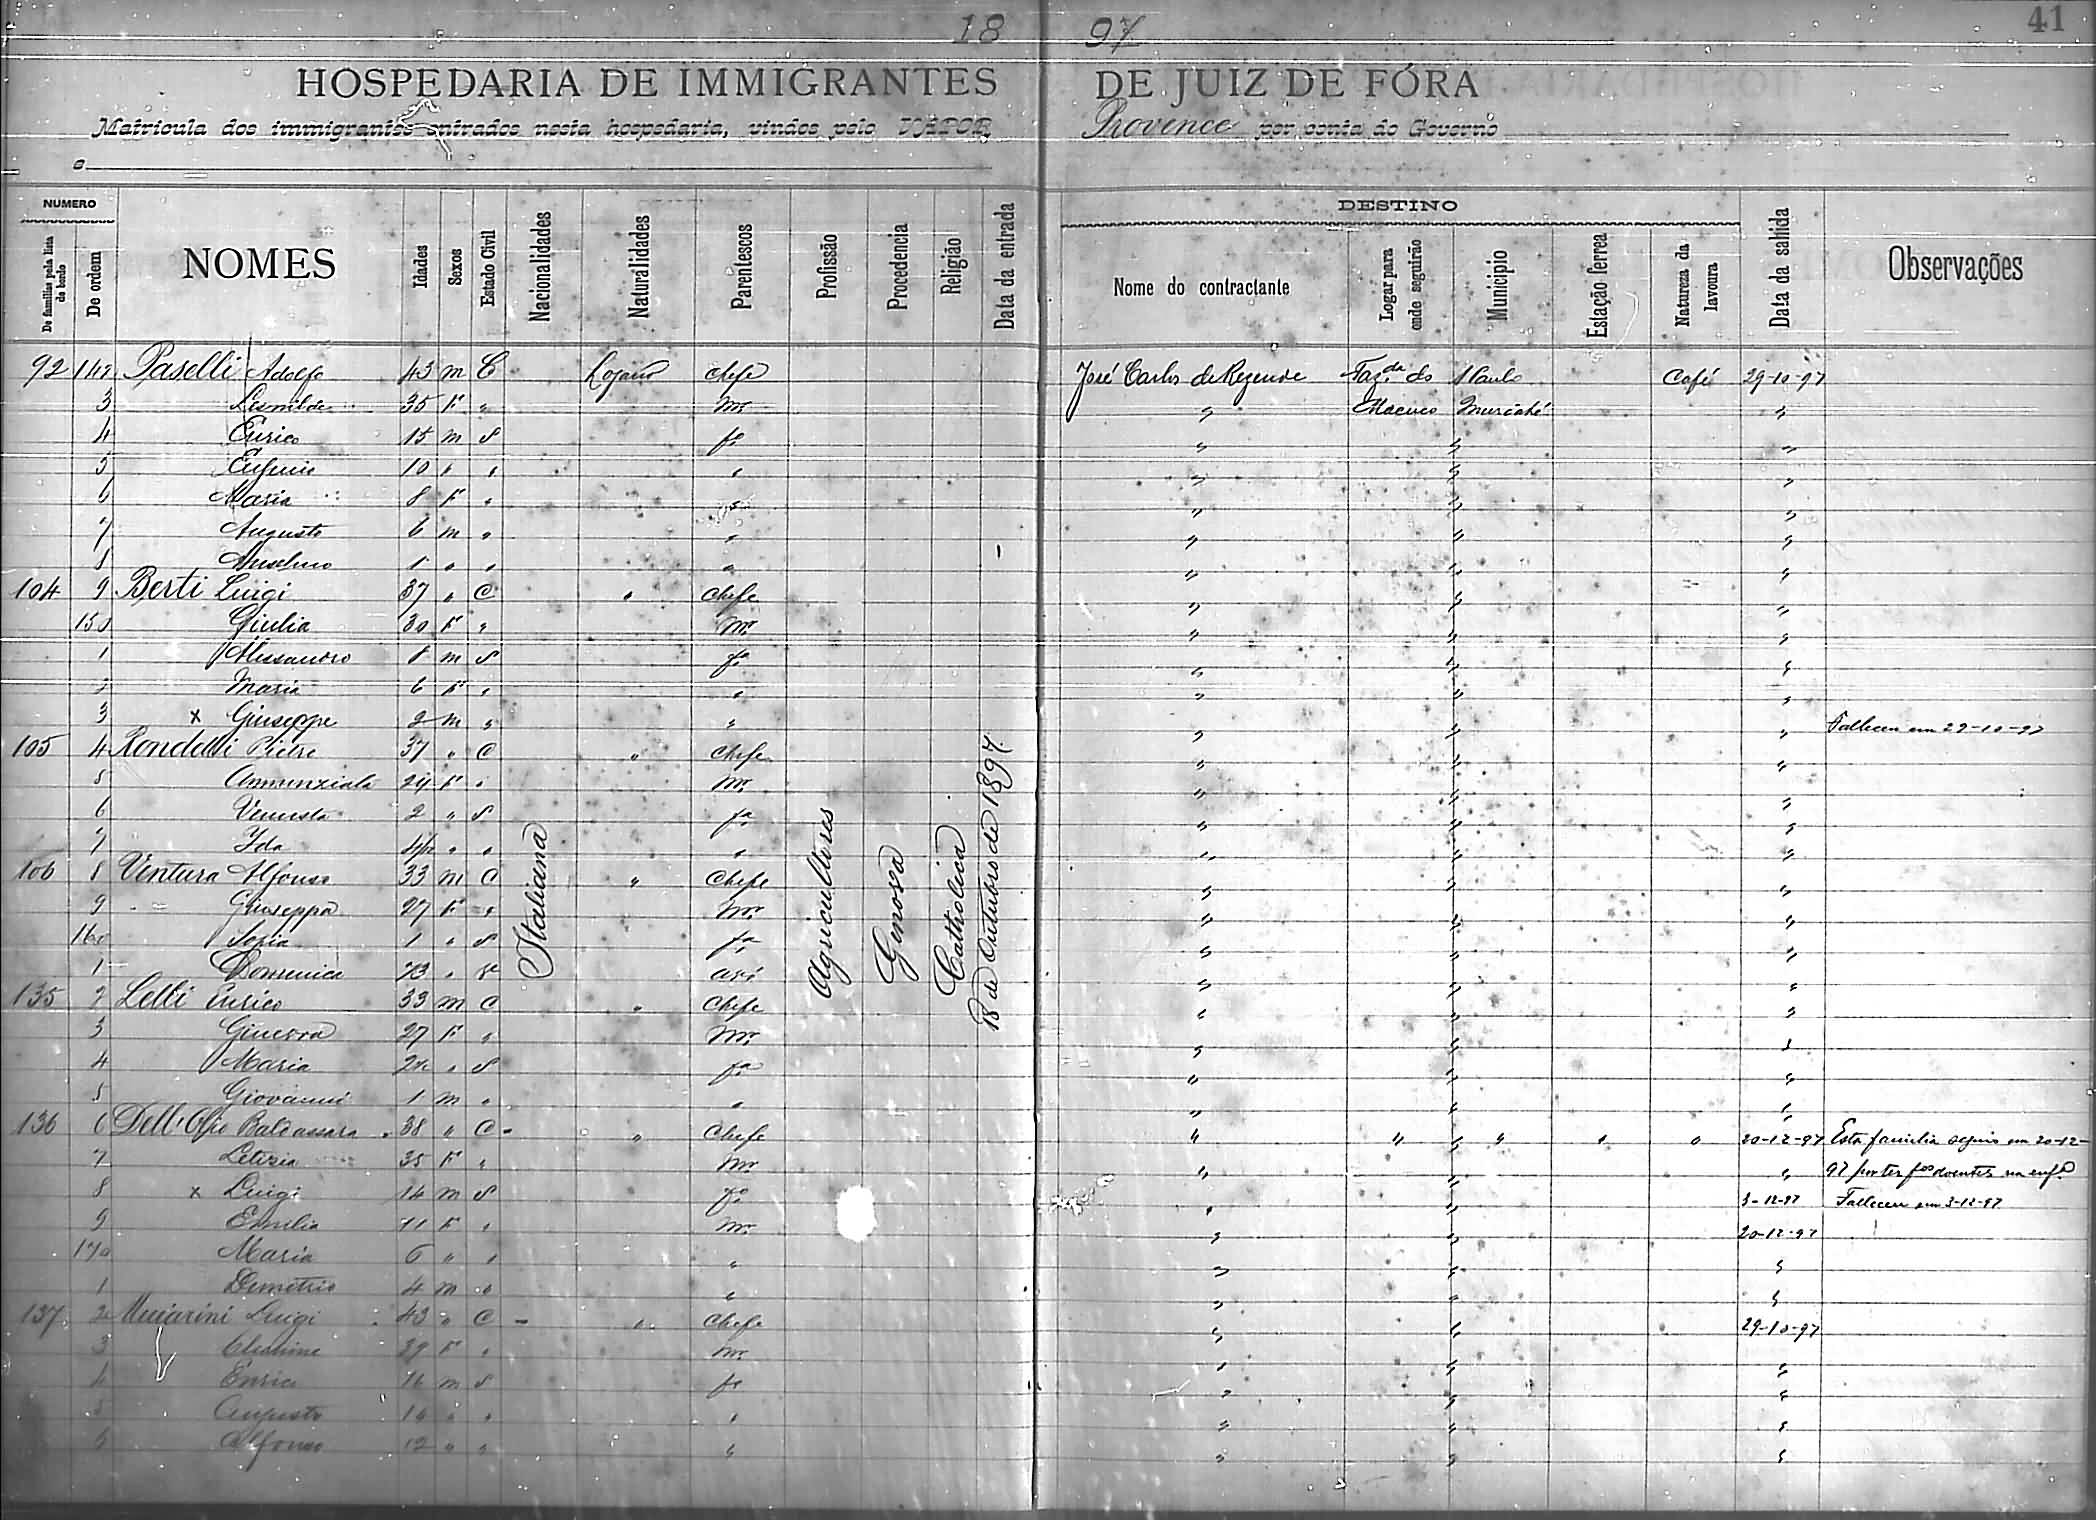 18 97 41
HOSPEDARIA DE IMMIGRANTES DE JUIZ DE FÓRA
Matricula dos immigrantes entrados nesta hospedaria, vindos pelo VAPOR Provence por conta do Governo
e
NUMERO DESTINO
De familias pela lista de bordo De ordem NOMES Idades Sexos Estado Civil Nacionalidades Naturalidades Parentescos Profissão Procedencia Religião Data da entrada Nome do contractante Logar para onde seguirão Municipio Estação ferrea Natureza da lavoura Data da sahida Observações
92 142 Paselli Adolfo 43 m C chefe José Carlos de Rezende Fazda do S Paulo Café 29-10-97
3 35 F " mr " Macuco Muriahé "
4 Enrico 15 m S fo " " "
5 Eugenio 10 " " " " " "
6 Maria 8 F " " " " "
7 Augusto 6 m " " " " "
8 Anselmo 1 " " " " " "
104 9 Berti Luigi 37 " C " chefe " " "
150 Giulia 30 F " mr " " "
1 Alessandro 8 m S fo " " "
2 Maria 6 F " " " " "
3 x Giuseppe 2 m " " " " " Falleceu em 29-10-97
105 4 Rondelli Pietro 37 " C " chefe " " "
5 Annunziata 24 F " mr " " "
6 Venusta 2 " S fa " " "
7 Ida " " " " " "
106 8 Ventura Alfonso 33 m C " chefe " " "
9 Giuseppa 27 F " mr " " "
160 1 " S fa " " "
1 Domenica 73 " avó " " "
135 2 Lelli Enrico 33 m C " chefe " " "
3 Ginevra 27 F " mr " " "
4 Maria " S fa " " "
5 Giovanni 1 m " " " " "
136 6 Dell'Olio Baldassara 38 " C " chefe " " " " " " 20-12-97 Esta familia seguio em 20-12-
7 Letizia 35 F " mr " " " 97 por ter fos doentes na enfa
8 x Luigi 14 m S fo " " 3-12-97 Falleceu em 3-12-97
9 Emilia 11 F " mr " " 20-12-97
170 Maria 6 " " " " " "
1 Demetrio 4 m " " " " "
137 2 Luigi 43 " C " chefe " " 29-10-97
3 39 F " mr " " "
4 Enrico 16 m S fo " " "
5 Augusto 14 " " " " " "
Alfonso 12 " " " " " "
Italiana
Agricultores
Genova
Catholica
18 de Outubro de 1897